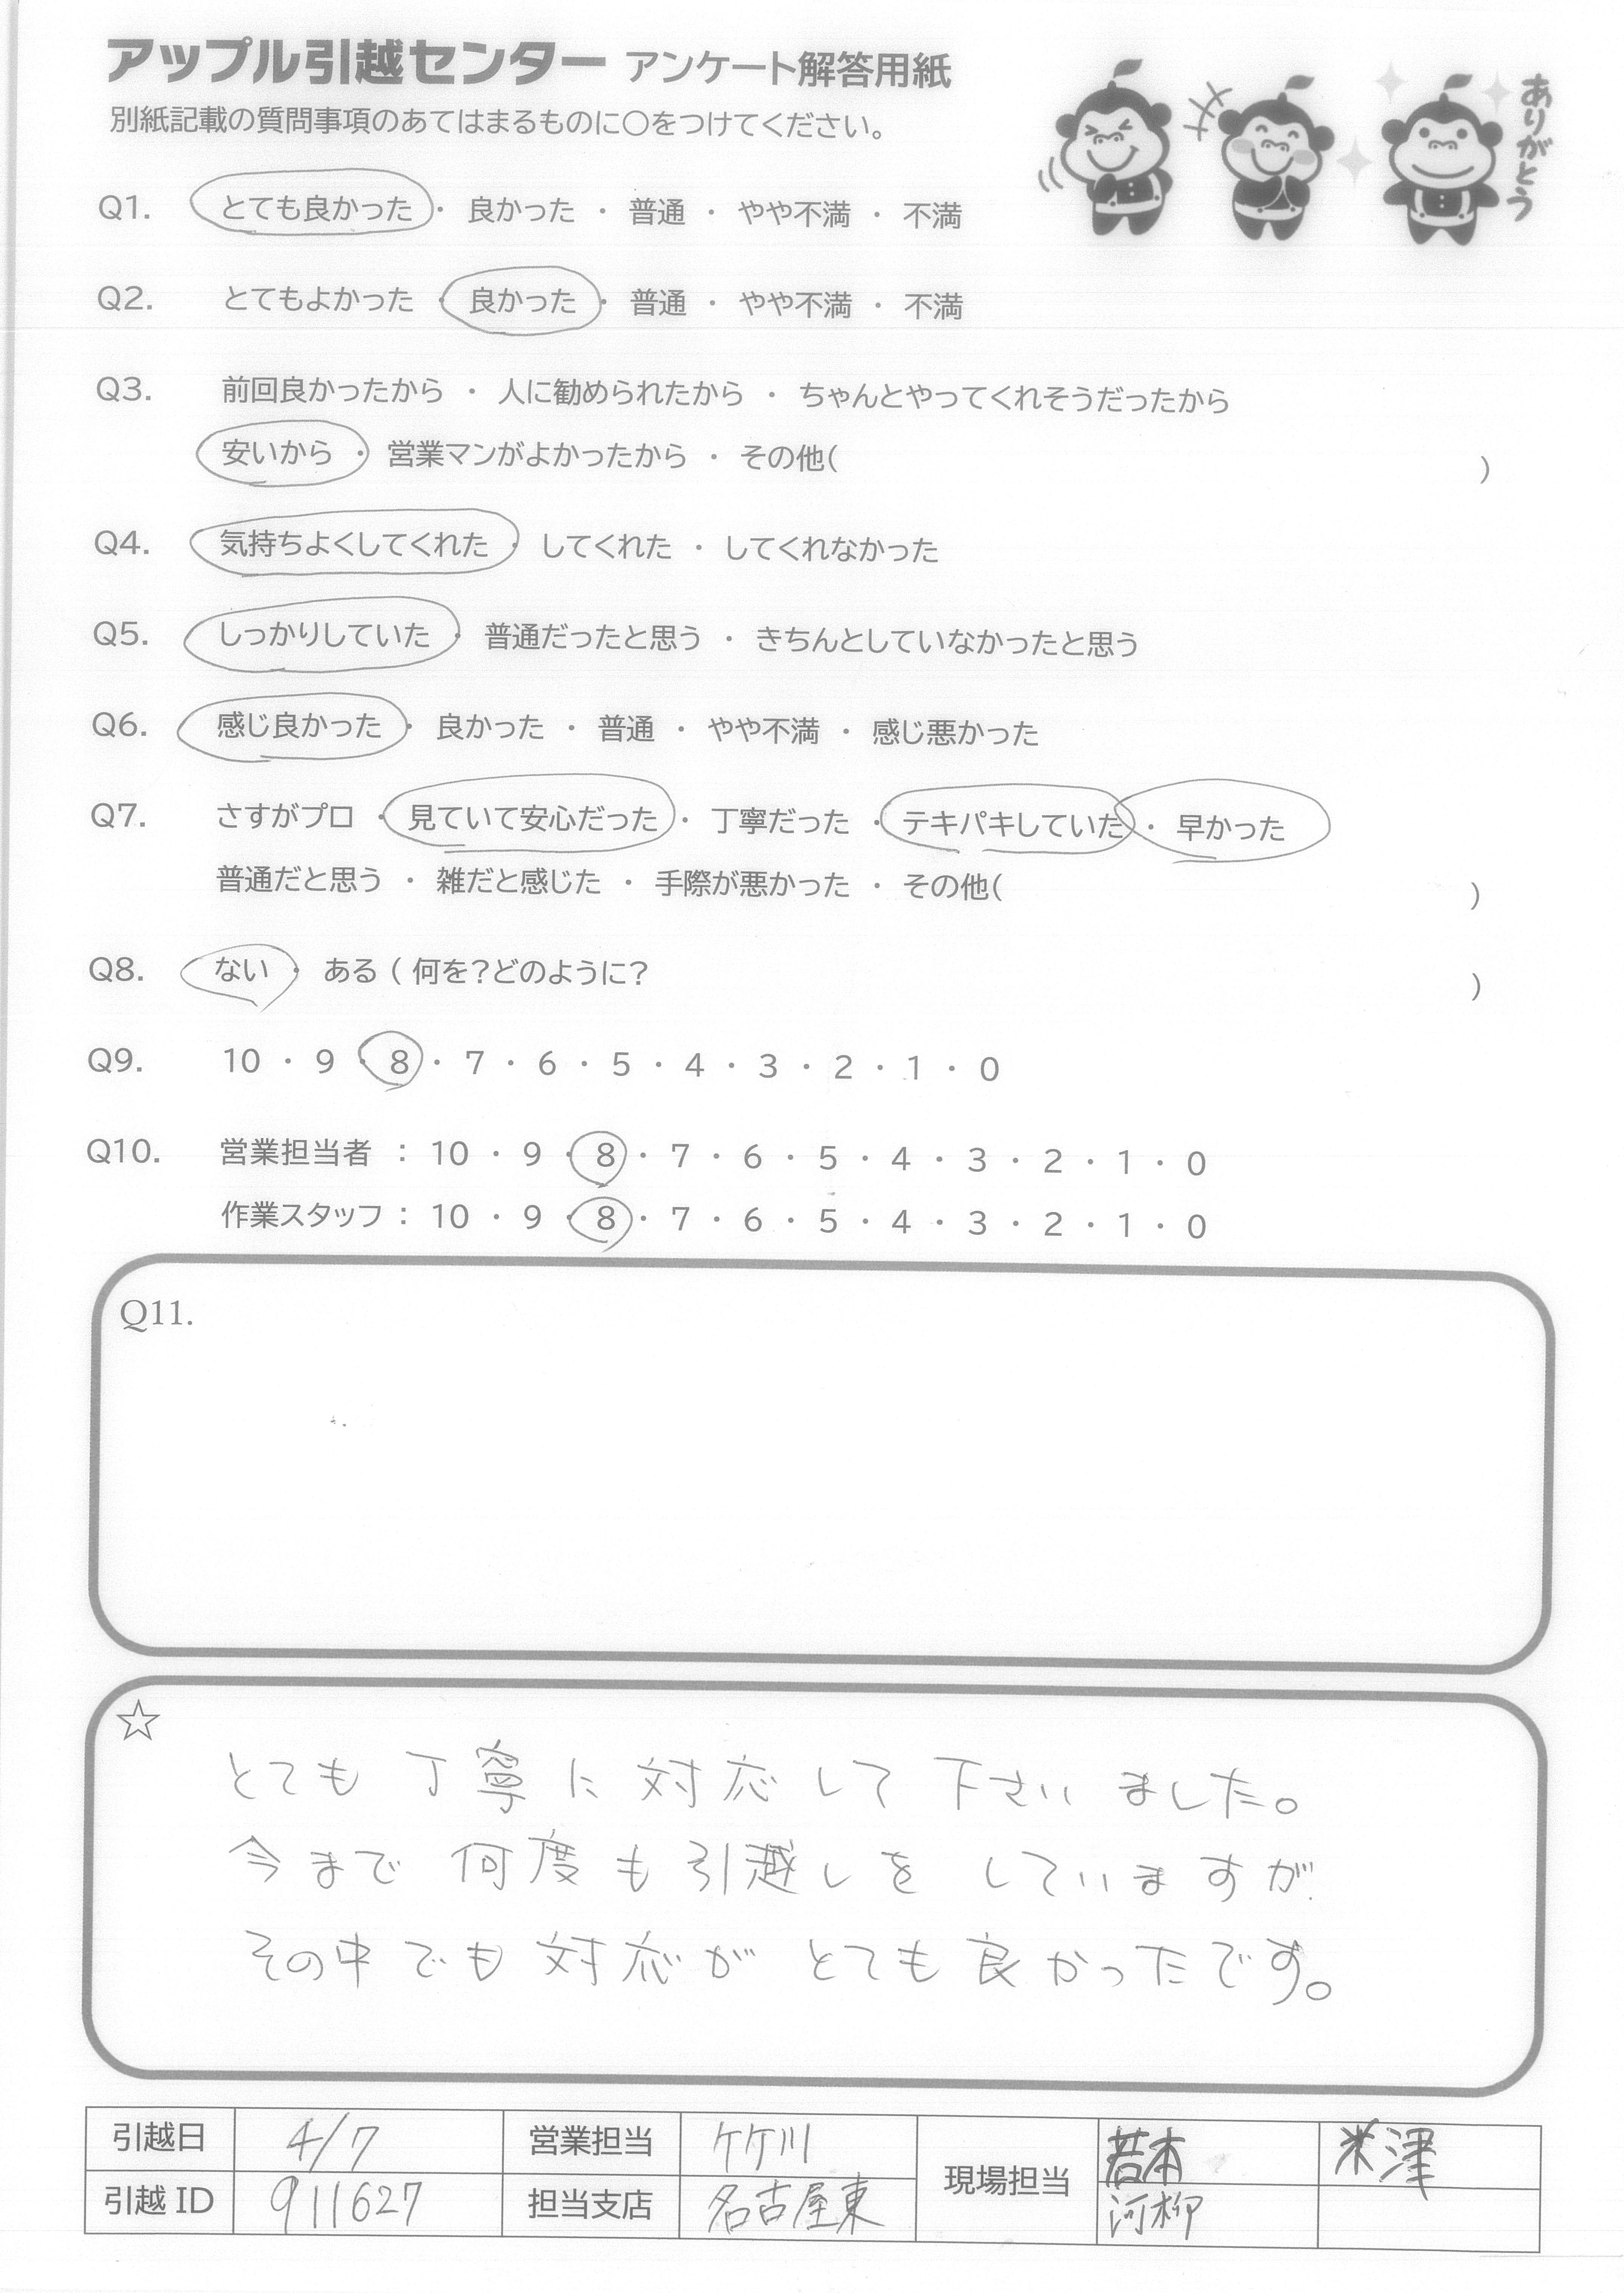 アップル引越センター アンケート解答用紙
別紙記載の質問事項のあてはまるものに〇をつけてください。
ありがとう
Q1. とても良かった ・ 良かった ・ 普通 ・ やや不満 ・ 不満
Q2. とてもよかった ・ 良かった ・ 普通 ・ やや不満 ・ 不満
Q3. 前回良かったから ・ 人に勧められたから ・ ちゃんとやってくれそうだったから
安いから ・ 営業マンがよかったから ・ その他( )
Q4. 気持ちよくしてくれた ・ してくれた ・ してくれなかった
Q5. しっかりしていた ・ 普通だったと思う ・ きちんとしていなかったと思う
Q6. 感じ良かった ・ 良かった ・ 普通 ・ やや不満 ・ 感じ悪かった
Q7. さすがプロ ・ 見ていて安心だった ・ 丁寧だった ・ テキパキしていた ・ 早かった
普通だと思う ・ 雑だと感じた ・ 手際が悪かった ・ その他( )
Q8. ない ・ ある ( 何を?どのように? )
Q9. 10 ・ 9 ・ 8 ・ 7 ・ 6 ・ 5 ・ 4 ・ 3 ・ 2 ・ 1 ・ 0
Q10. 営業担当者 : 10 ・ 9 ・ 8 ・ 7 ・ 6 ・ 5 ・ 4 ・ 3 ・ 2 ・ 1 ・ 0
作業スタッフ : 10 ・ 9 ・ 8 ・ 7 ・ 6 ・ 5 ・ 4 ・ 3 ・ 2 ・ 1 ・ 0
Q11.
☆
とても丁寧に対応して下さいました。
今まで何度も引越しをしていますが
その中でも対応がとても良かったです。
引越日 4/7 営業担当 竹川 現場担当 若本 米津
引越ID 911627 担当支店 名古屋東 河柳